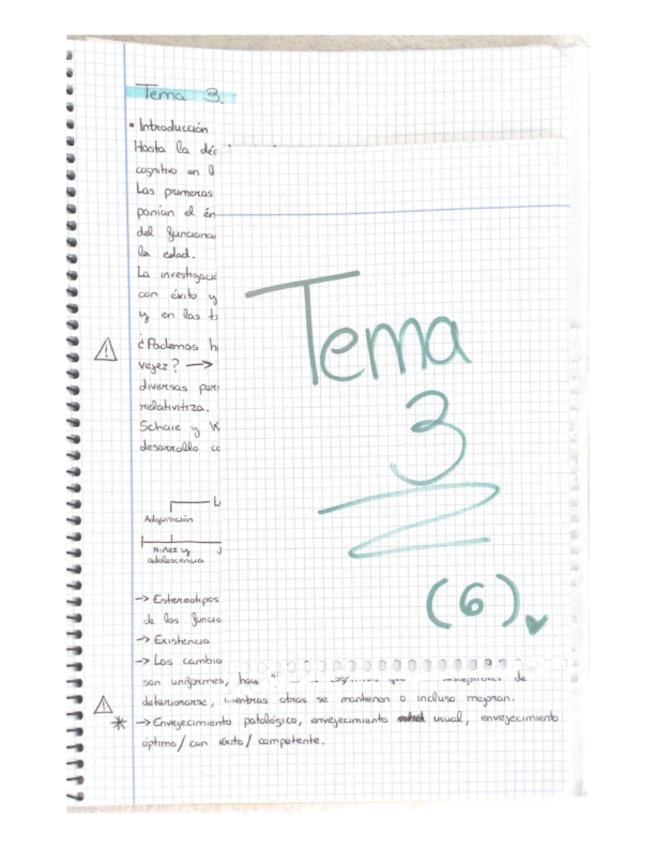 Tema 3.
• Introducción
Hasta la déc
cognitivo en
Las primeras
ponían el én
del funciona
la edad.
La investigaci
con éxito y
y en las
¿Podemos h
vejez? →
diversas par
relativitiza.
Schaie y W
desarrollo co
Adquisición
Niñez y
adolescencia
→ Estereotipos
de las funcio
→ Existencia
→ Los cambio
son uniformes, hay
de
deteriorarse, mientras otras se mantienen o incluso mejoran.
* → Envejecimiento patológico, envejecimiento usual, envejecimiento
óptimo/con éxito/competente.
Tema
3
(6)